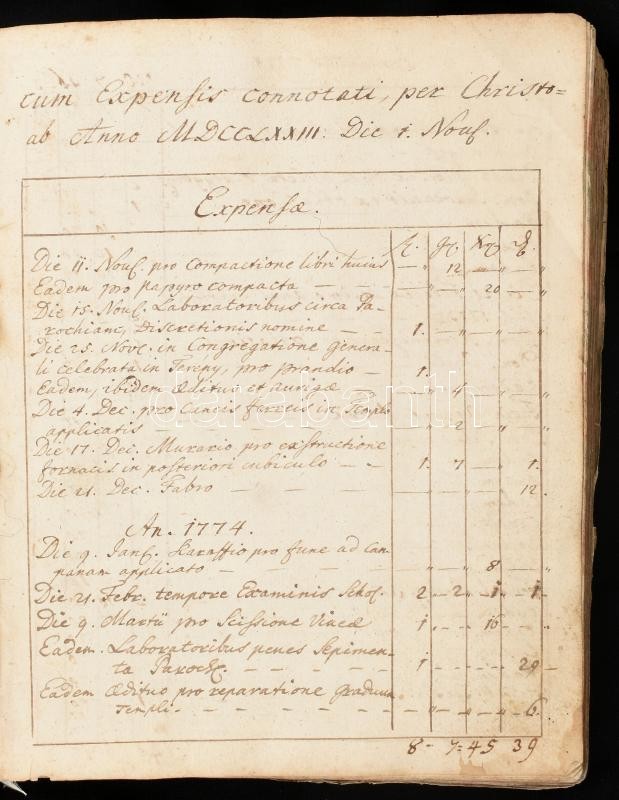 cum Expensis connotati, per Christo=
ab Anno MDCCLXXIII. Die 1. Nov.
Expensæ.
Die 11. Nov. pro Compactione libri huius — " 12 — " — "
Eadem pro papyro compacta — — — — " — 20 — "
Die 15. Nov. Laboratoribus circa Pa-
rochiam, Discretionis nomine — — 1. — " — " — "
Die 25. Nove. in Congregatione genera-
li celebrata in Terény, pro prandio — 1.
Eadem, ibidem Ædituo et aurigæ — — " 4 — " — "
Die 4. Dec. pro Cuneis ferreis in Templo
applicatis — " 2 " — "
Die 17. Dec. Murario pro exstructione
fornacis in posteriori cubiculo — — 1. 7 — " 1.
Die 21. Dec. Fabro — — — — — " — " 12.
An. 1774.
Die 9. Jan. pro fune ad Cam-
panam applicato — — — — " — " 8 — "
Die 21. Febr. tempore Examinis Schol. 2 — 2 — 1 — 1
Die 9. Martii pro Scissione Vineæ 1. — — 16 — "
Eadem. Laboratoribus penes Sepimen-
ta Paroch. — — — — 1 — — — 20 —
Eadem Ædituo pro reparatione graduum
Templi. — — — — — — " — " — 6.
8 - 7 = 45 39
darabanth